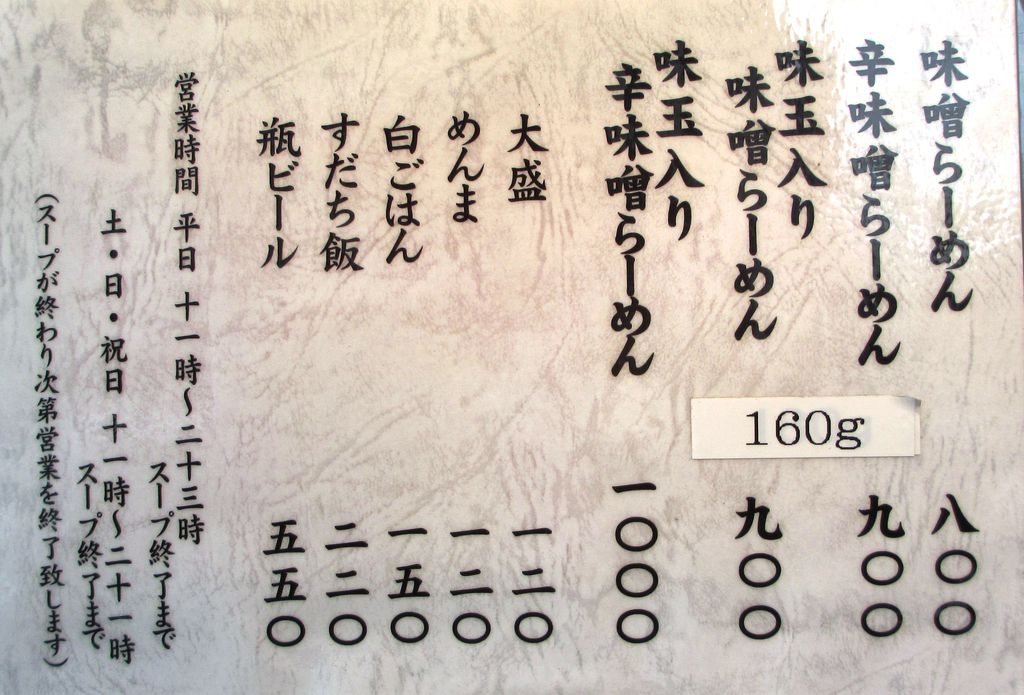 味噌らーめん 八〇〇
辛味噌らーめん 九〇〇
味玉入り
味噌らーめん 九〇〇
味玉入り
辛味噌らーめん 一〇〇〇
160g
大盛 一二〇
めんま 一二〇
白ごはん 一五〇
すだち飯 二二〇
瓶ビール 五五〇
営業時間 平日 十一時～二十三時
スープ終了まで
土・日・祝日 十一時～二十一時
スープ終了まで
（スープが終わり次第営業を終了致します）